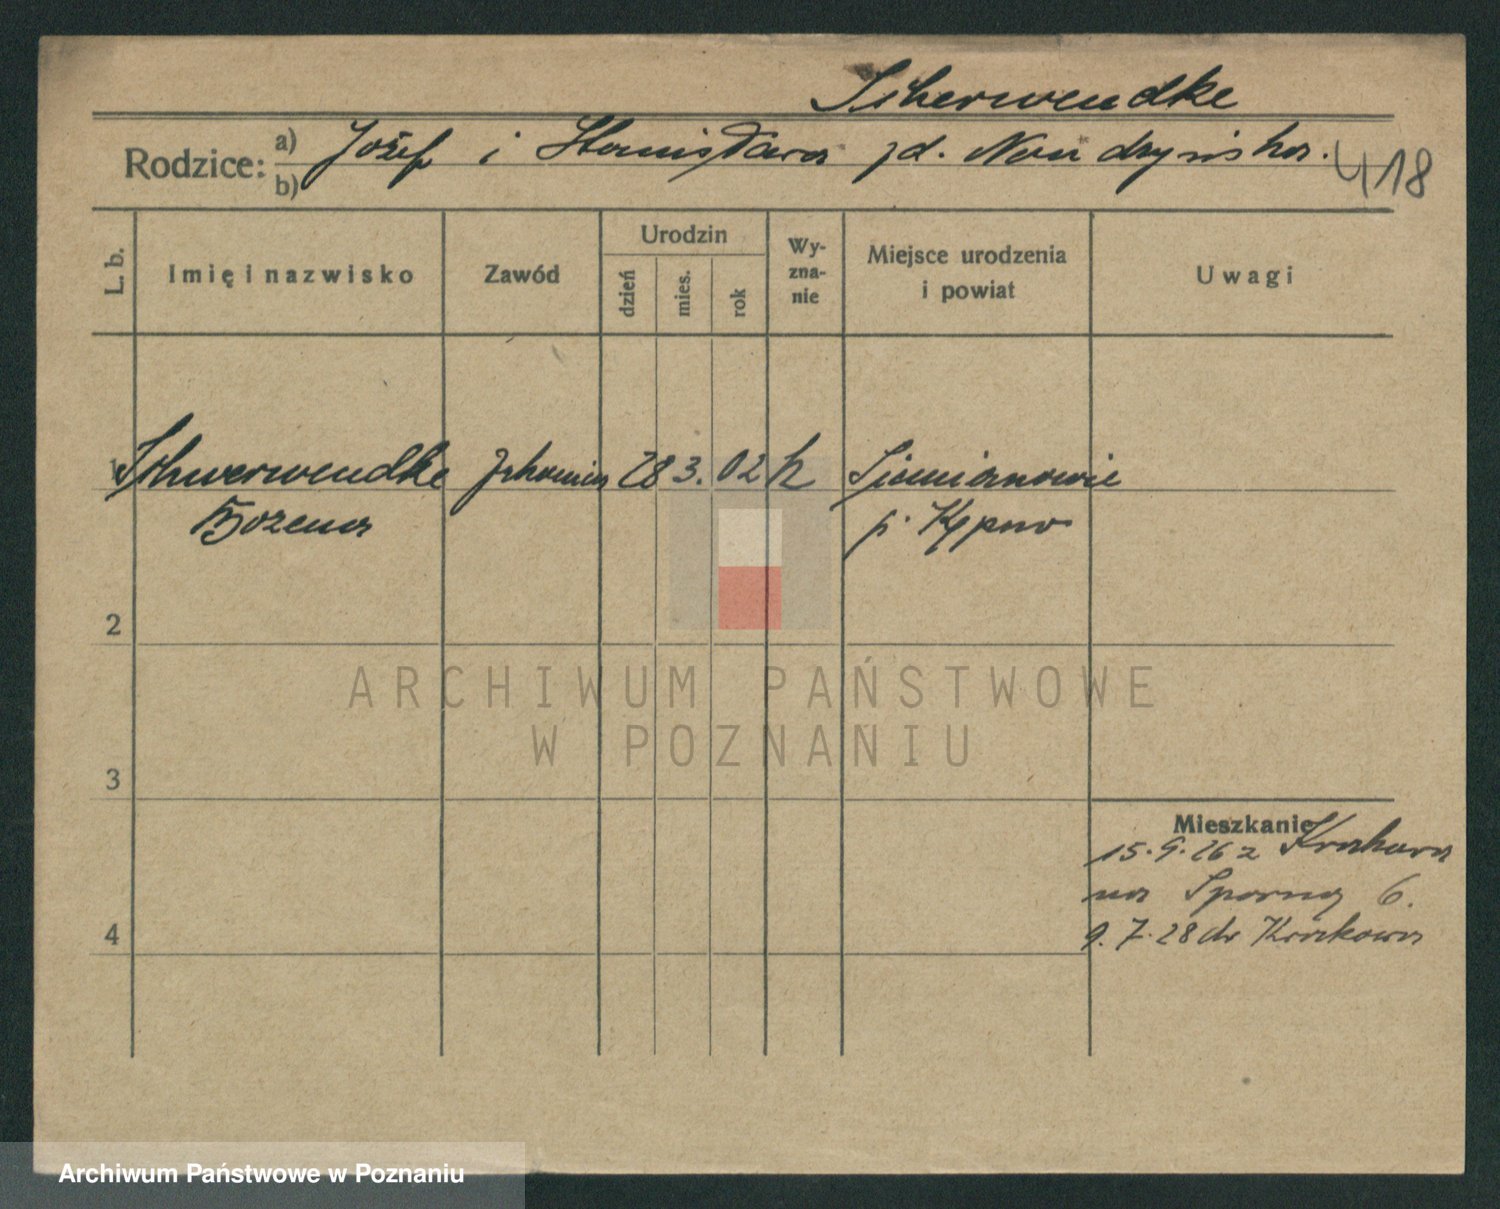 Scherwendke
Rodzice: a) Józef i Stanisława zd.
b)
418
L. b. Imię i nazwisko Zawód Urodzin dzień mies. rok Wyznanie Miejsce urodzenia i powiat Uwagi
Schwerwendke 28 3. 02 k Siemianowie
Bożena p. Kępno
2
3
Mieszkanie
15.9.26 z Krakowa
na Sporna 6.
4
9.7.28 do Krakowa
ARCHIWUM PAŃSTWOWE
W POZNANIU
Archiwum Państwowe w Poznaniu